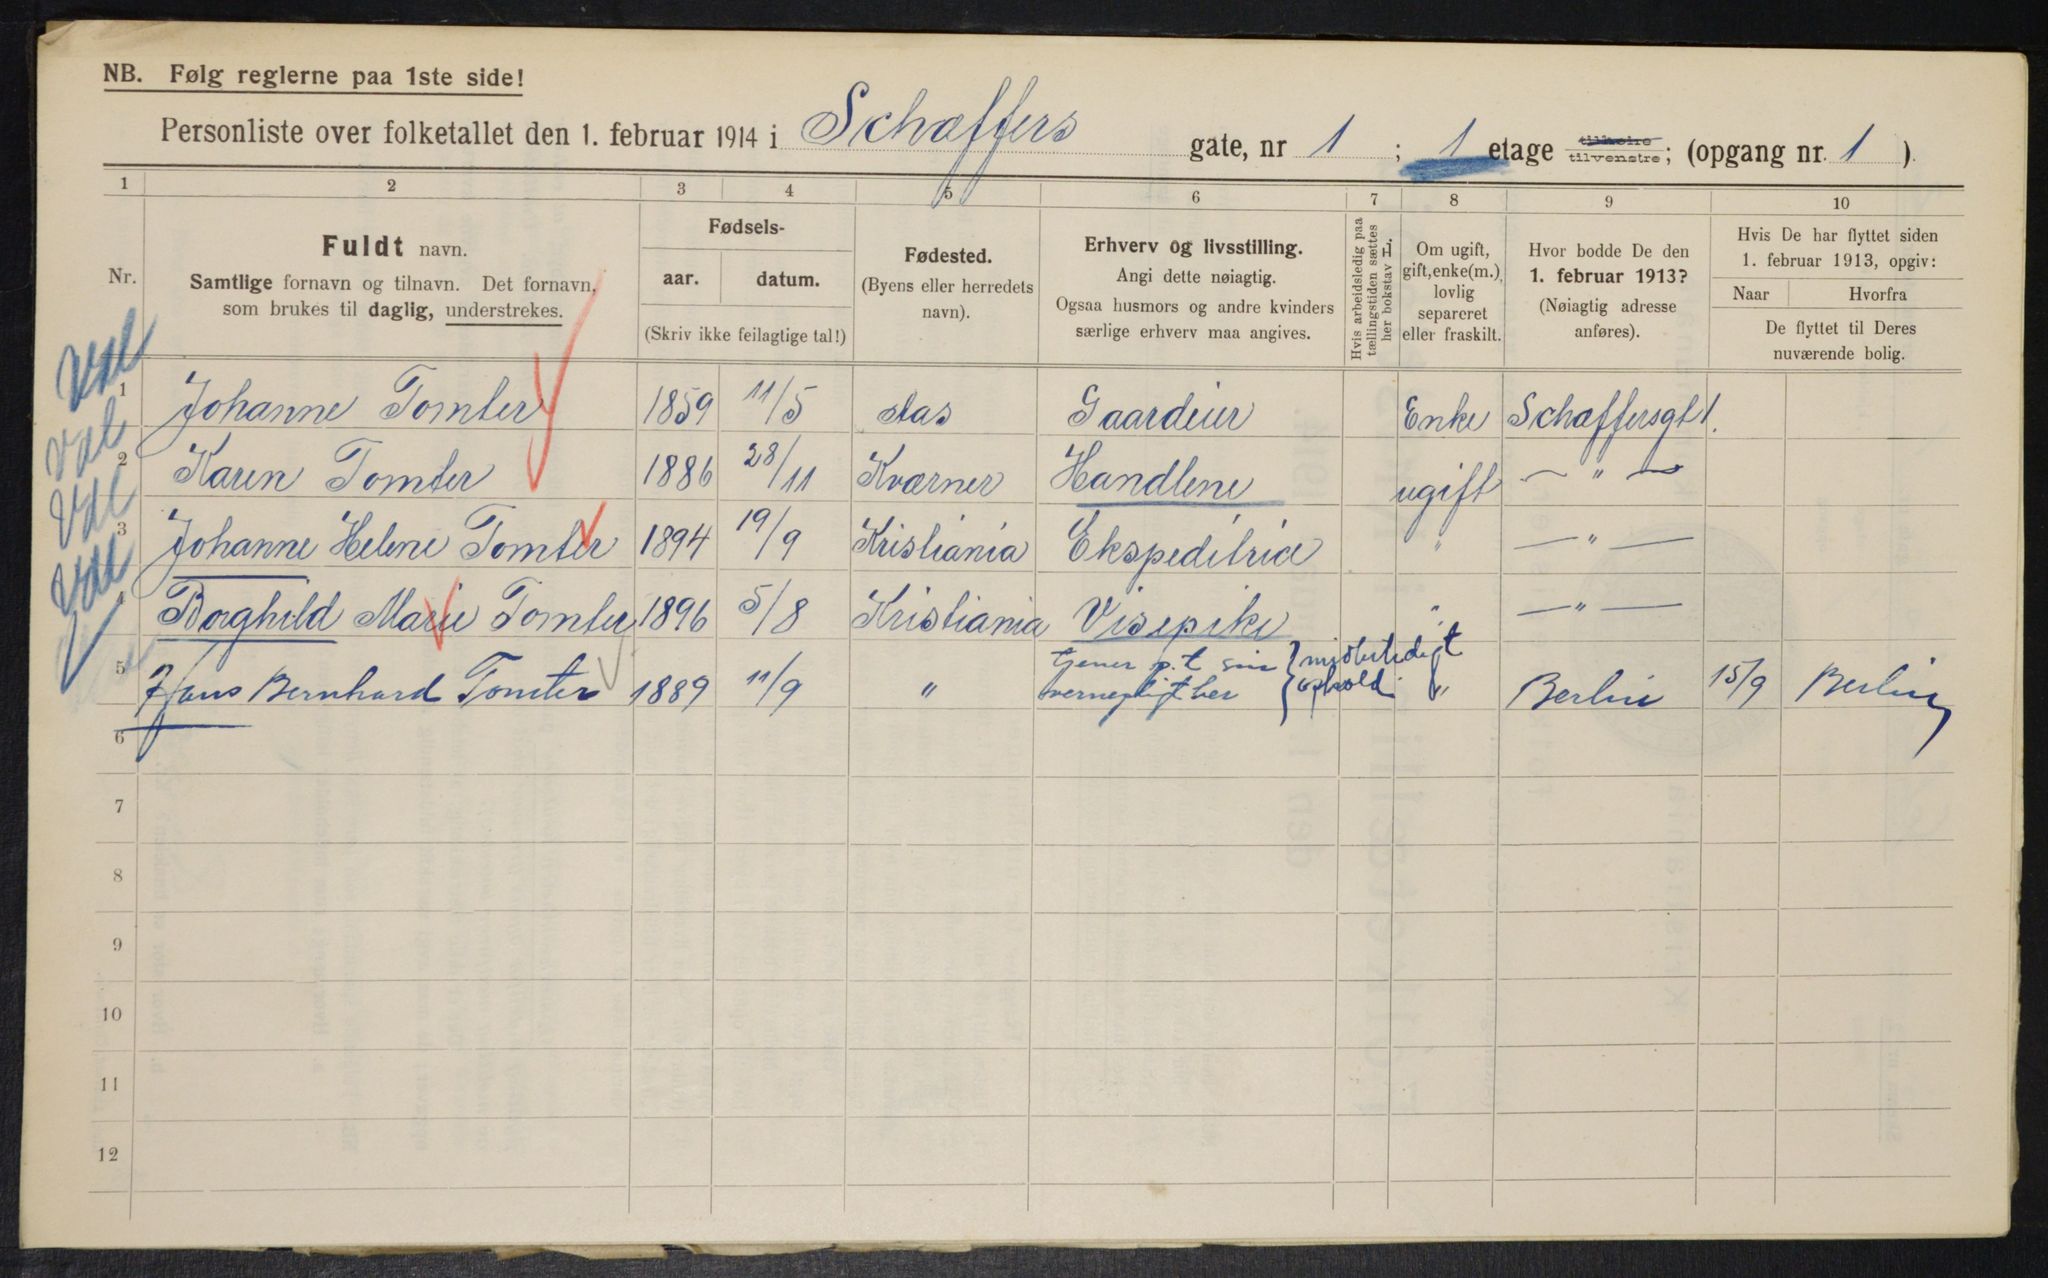 NB. Følg reglerne paa 1ste side!
Personliste over folketallet den 1. februar 1914 i Schæffers gate, nr 1 ; 1 etage tilhøire tilvenstre; (opgang nr. 1 ).
1 2 3 4 5 6 7 8 9 10
Nr.
Fuldt navn.
Samtlige fornavn og tilnavn. Det fornavn,
som brukes til daglig, understrekes.
Fødsels-
aar. datum.
(Skriv ikke feilagtige tal!)
Fødested.
(Byens eller herredets
navn).
Erhverv og livsstilling.
Angi dette nøiagtig.
Ogsaa husmors og andre kvinders
særlige erhverv maa angives.
Hvis arbeidsledig paa
tællingstiden sættes
her bokstav L
Om ugift,
gift, enke(m.),
lovlig
separeret
eller fraskilt.
Hvor bodde De den
1. februar 1913?
(Nøiagtig adresse
anføres).
Hvis De har flyttet siden
1. februar 1913, opgiv:
Naar Hvorfra
De flyttet til Deres
nuværende bolig.
1 Johanne Tomter 1859 11/5 Aas Gaardeier Enke Schæffersgt 1.
2 Karen Tomter 1886 28/11 Kværner Handlene ugift — " —
3 Johanne Helene Tomter 1894 19/9 Kristiania Ekspeditrice " — " —
4 Borghild Marie Tomter 1896 5/8 Kristiania Visepike " — " —
5 Hans Bernhard Tomter 1889 11/9 " tjener p.t. sin vernepligt her } midlertidigt ophold " Berlin 15/9 Berlin
6
7
8
9
10
11
12